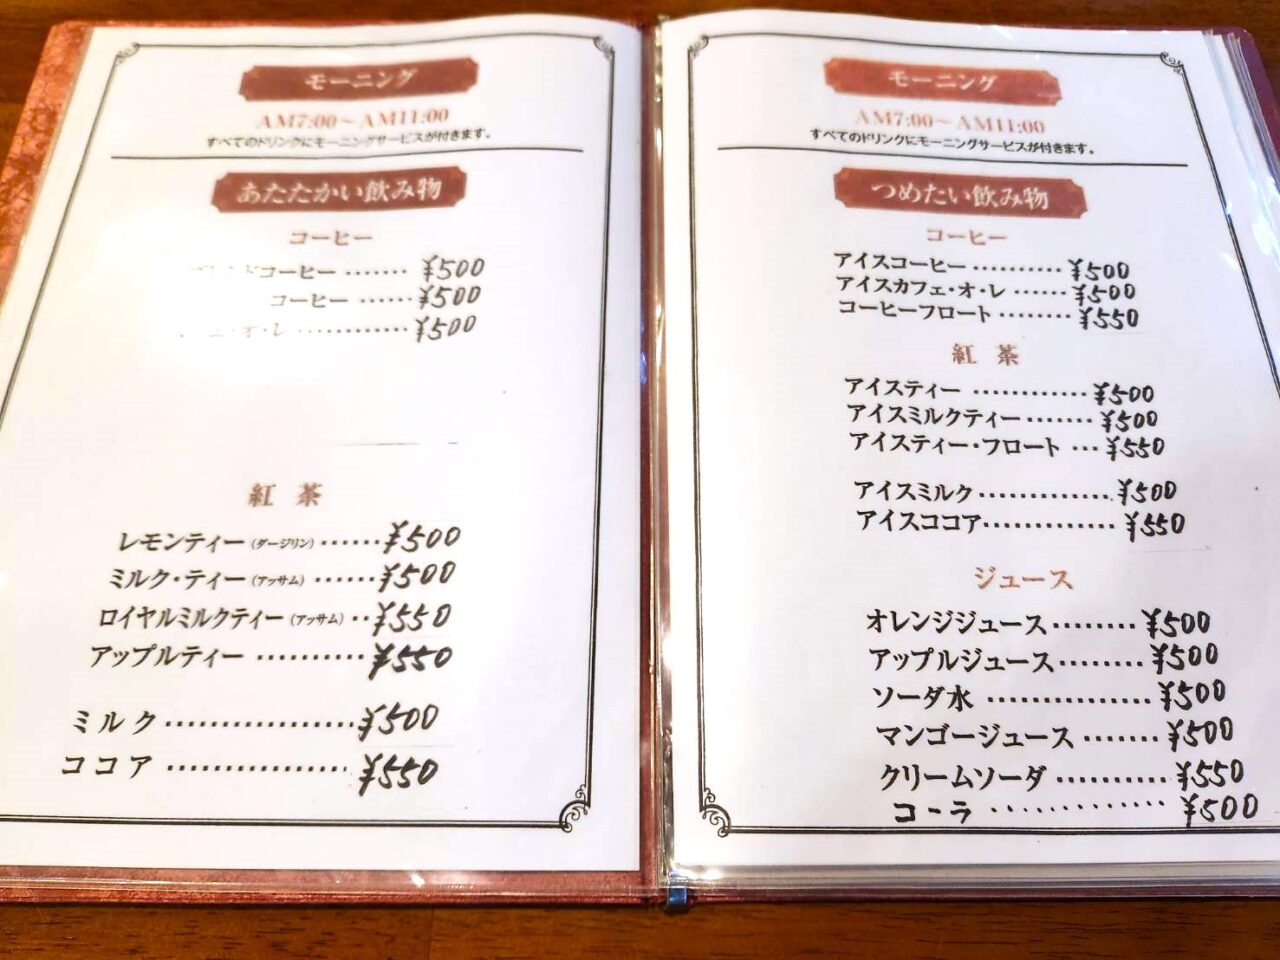 モーニング
AM7:00～AM11:00
すべてのドリンクにモーニングサービスが付きます。
あたたかい飲み物
コーヒー
ドコーヒー ······· ¥500
コーヒー ······ ¥500
ェ・オ・レ ············ ¥500
紅 茶
レモンティー (ダージリン) ······ ¥500
ミルク・ティー (アッサム) ······ ¥500
ロイヤルミルクティー (アッサム) ·· ¥550
アップルティー ·········· ¥550
ミルク ················· ¥500
ココア ················ ¥550
モーニング
AM7:00～AM11:00
すべてのドリンクにモーニングサービスが付きます。
つめたい飲み物
コーヒー
アイスコーヒー ·········· ¥500
アイスカフェ・オ・レ ······ ¥500
コーヒーフロート ········ ¥550
紅 茶
アイスティー ············ ¥500
アイスミルクティー ······· ¥500
アイスティー・フロート ··· ¥550
アイスミルク ············· ¥500
アイスココア ············· ¥550
ジュース
オレンジジュース ········ ¥500
アップルジュース ········ ¥500
ソーダ水 ··············· ¥500
マンゴージュース ······· ¥500
クリームソーダ ·········· ¥550
コーラ ············· ¥500